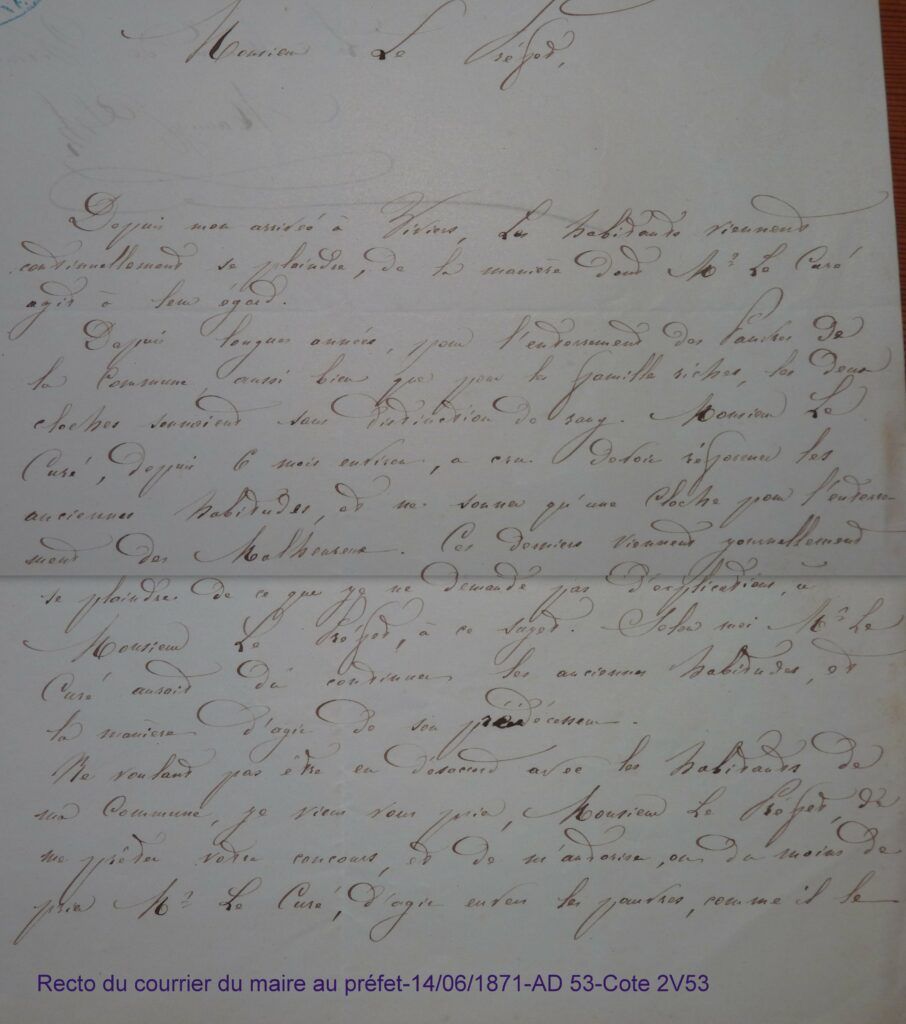 Monsieur Le Préfet,
Depuis mon arrivée à Viviers, Les habitants viennent
continuellement se plaindre, de la manière dont Mr Le Curé
agit à leur égard.
Depuis longues années, pour l'enterrement des Pauvres De
la Commune, aussi bien que pour les famille riches, les deux
cloches sonnoient sans distinction de rang. Monsieur Le
Curé, depuis 6 mois environ, a cru Devoir réformer les
anciennes habitudes, et ne sonner qu'une cloche pour l'enterre-
ment des Malheureux. Ces derniers viennent journellement
se plaindre de ce que je ne demande pas d'explications, à
Monsieur Le Préfet, à ce sujet. Selon moi Mr Le
Curé auroit dû continuer les anciennes habitudes, et
la manière d'agir de son prédécesseur.
Ne voulant pas être en désacord avec les habitants de
ma Commune, je viens vous prier, Monsieur Le Préfet, de
me prêter votre concours, et de m'autoriser, ou du moins de
prier Mr Le Curé, d'agir envers les pauvres, comme il le
Recto du courrier du maire au préfet-14/06/1871-AD 53-Cote 2V53